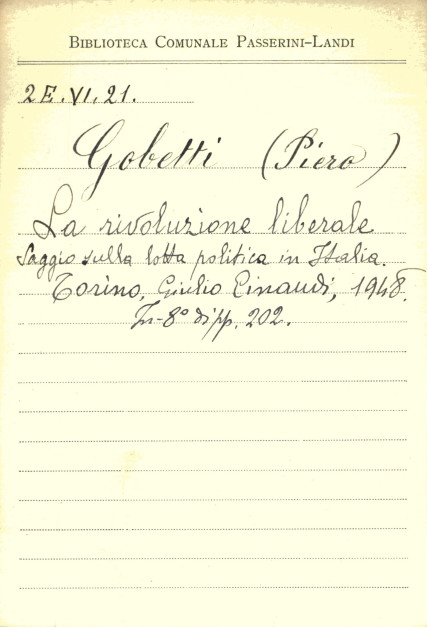 BIBLIOTECA COMUNALE PASSERINI-LANDI
2E.VI.21.
Gobetti (Piero)
La rivoluzione liberale
Saggio sulla lotta politica in Italia.
Torino, Giulio Einaudi, 1948.
In-8° di pp. 202.